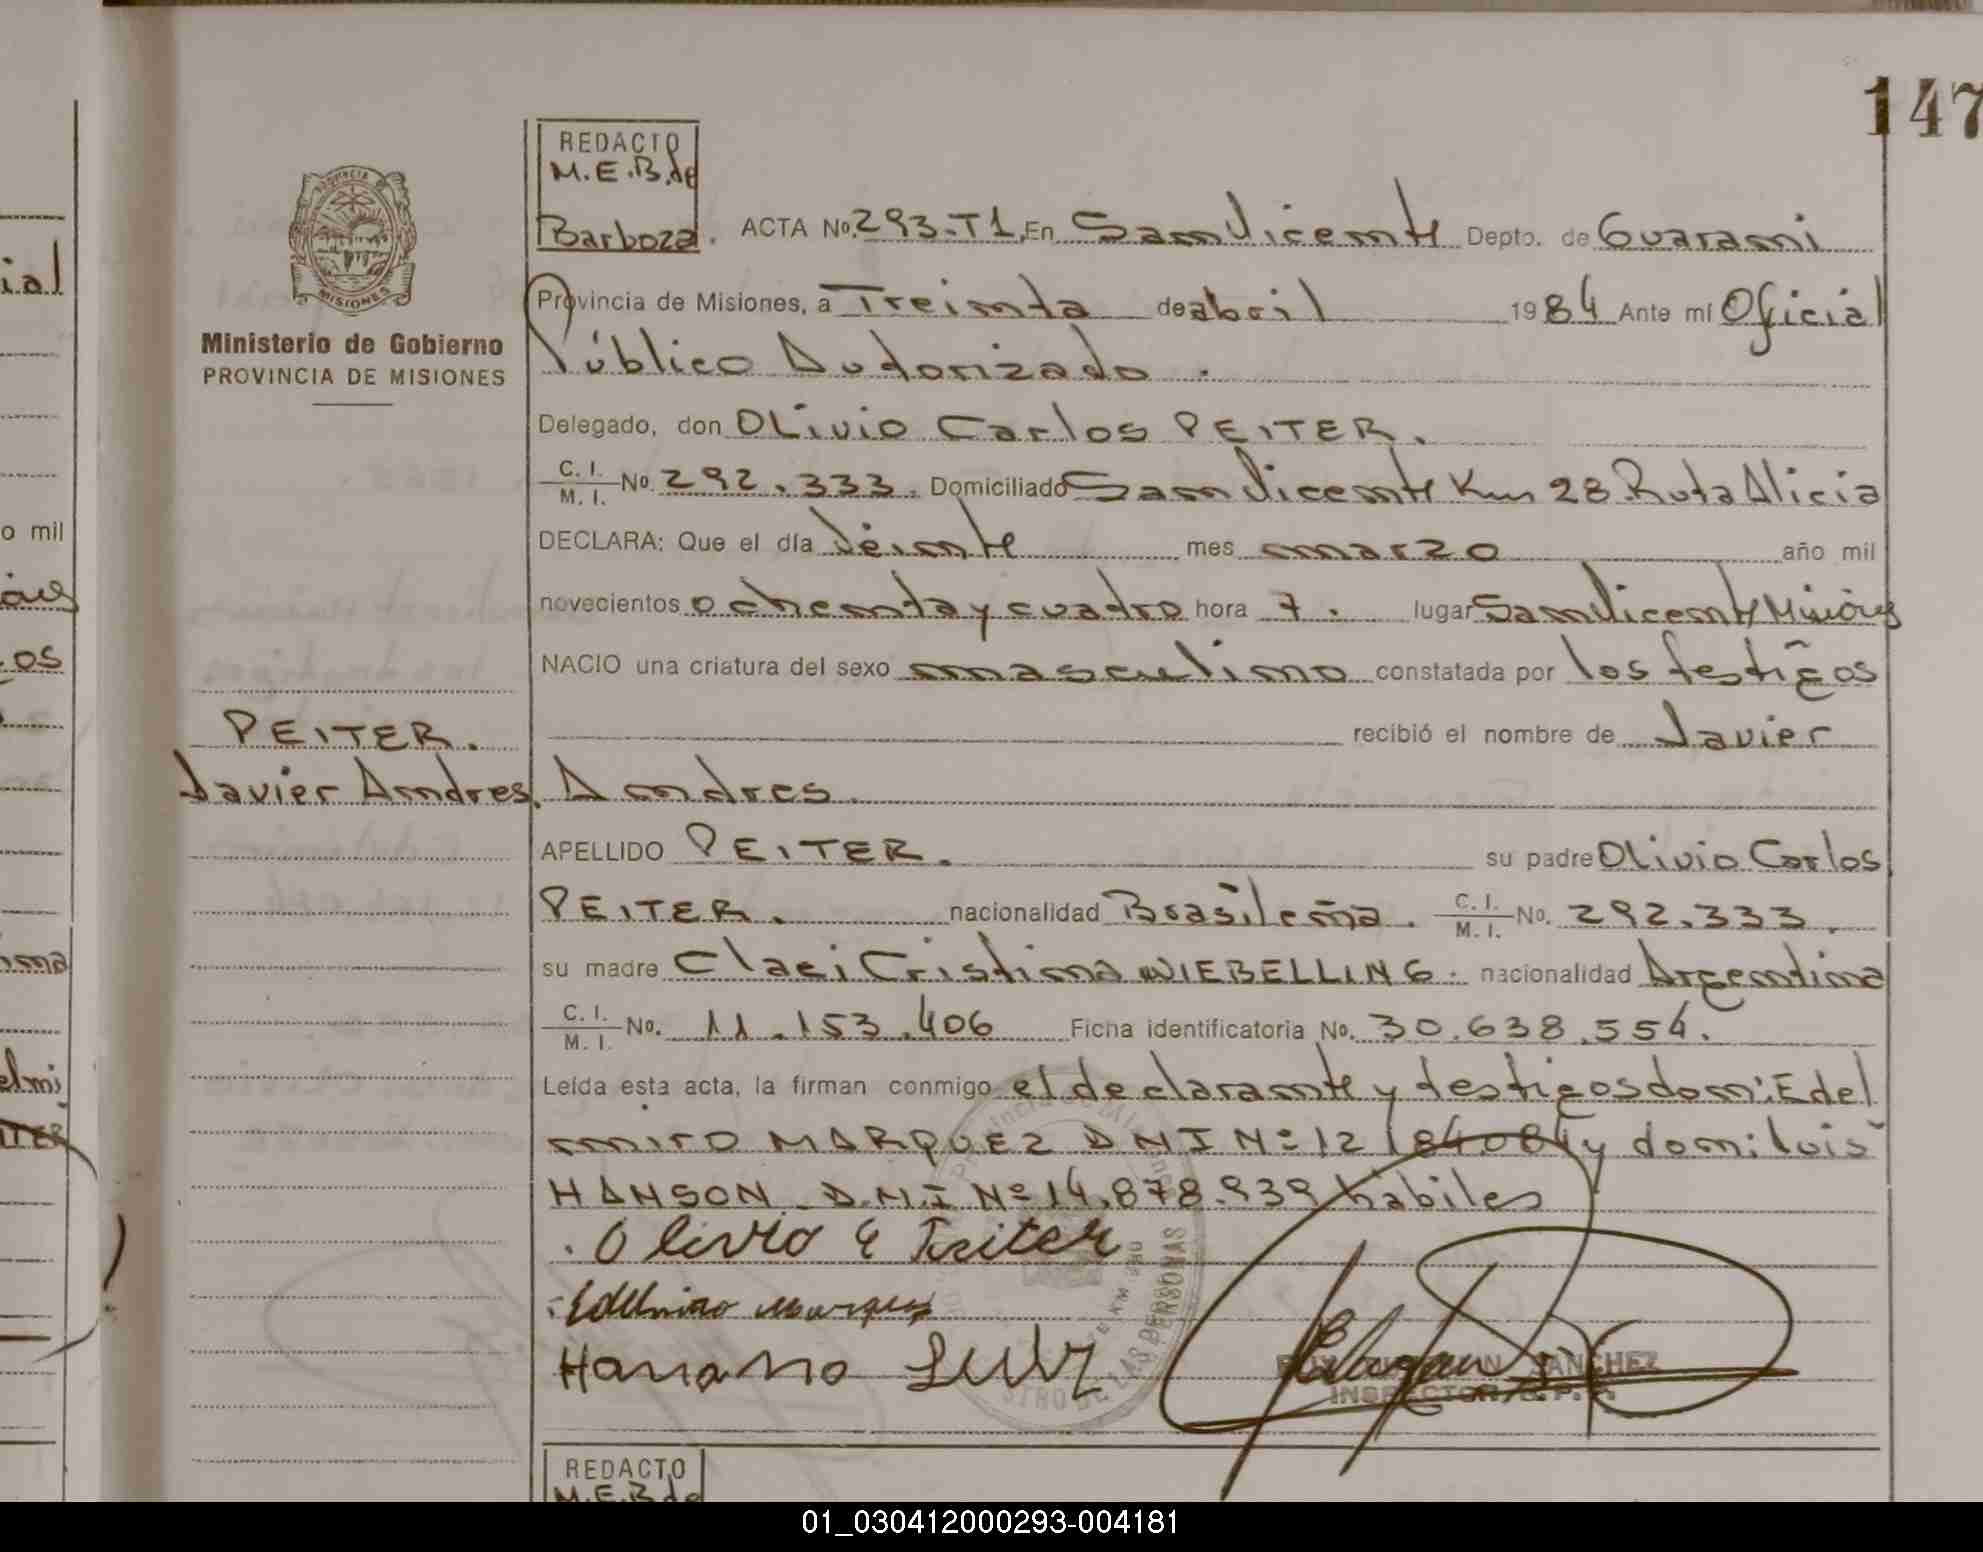 147
REDACTO
M.E.B.de
Barboza.
ACTA No. 293-T1. En San Vicente Depto. de Guarani
PROVINCIA DE
MISIONES
Ministerio de Gobierno
PROVINCIA DE MISIONES
Provincia de Misiones, a Treinta de abril 1984 Ante mí Oficial
Público Autorizado.
Delegado, don OLivio Carlos PEITER.
C. I. / M. I. No. 292.333. Domiciliado San Vicente Km 28 Ruta Alicia
DECLARA: Que el día Veinte mes marzo año mil
novecientos ochenta y cuatro hora 7. lugar San Vicente Misiones
NACIO una criatura del sexo masculino constatada por los testigos
recibió el nombre de Javier
PEITER.
Javier Andres.
Andres.
APELLIDO PEITER. su padre Olivio Carlos
PEITER. nacionalidad Brasileña. C. I. / M. I. No. 292.333.
su madre Claci Cristina WIEBELLING. nacionalidad Argentina
C. I. / M. I. No. 11.153.406 Ficha identificatoria No. 30.638.554.
Leída esta acta, la firman conmigo el declarante y testigos don: Edel
miro MARQUEZ D N I Nº 12 184.084 y don: luis
HANSON D.N.I Nº 14.878.939 habiles
Olivio C Peiter
Edelmiro Marquez
Hansono Luiz
SANCHEZ
INSPECTOR
REDACTO
M.E.B.de
ial
o mil
os
elmi
01_030412000293-004181